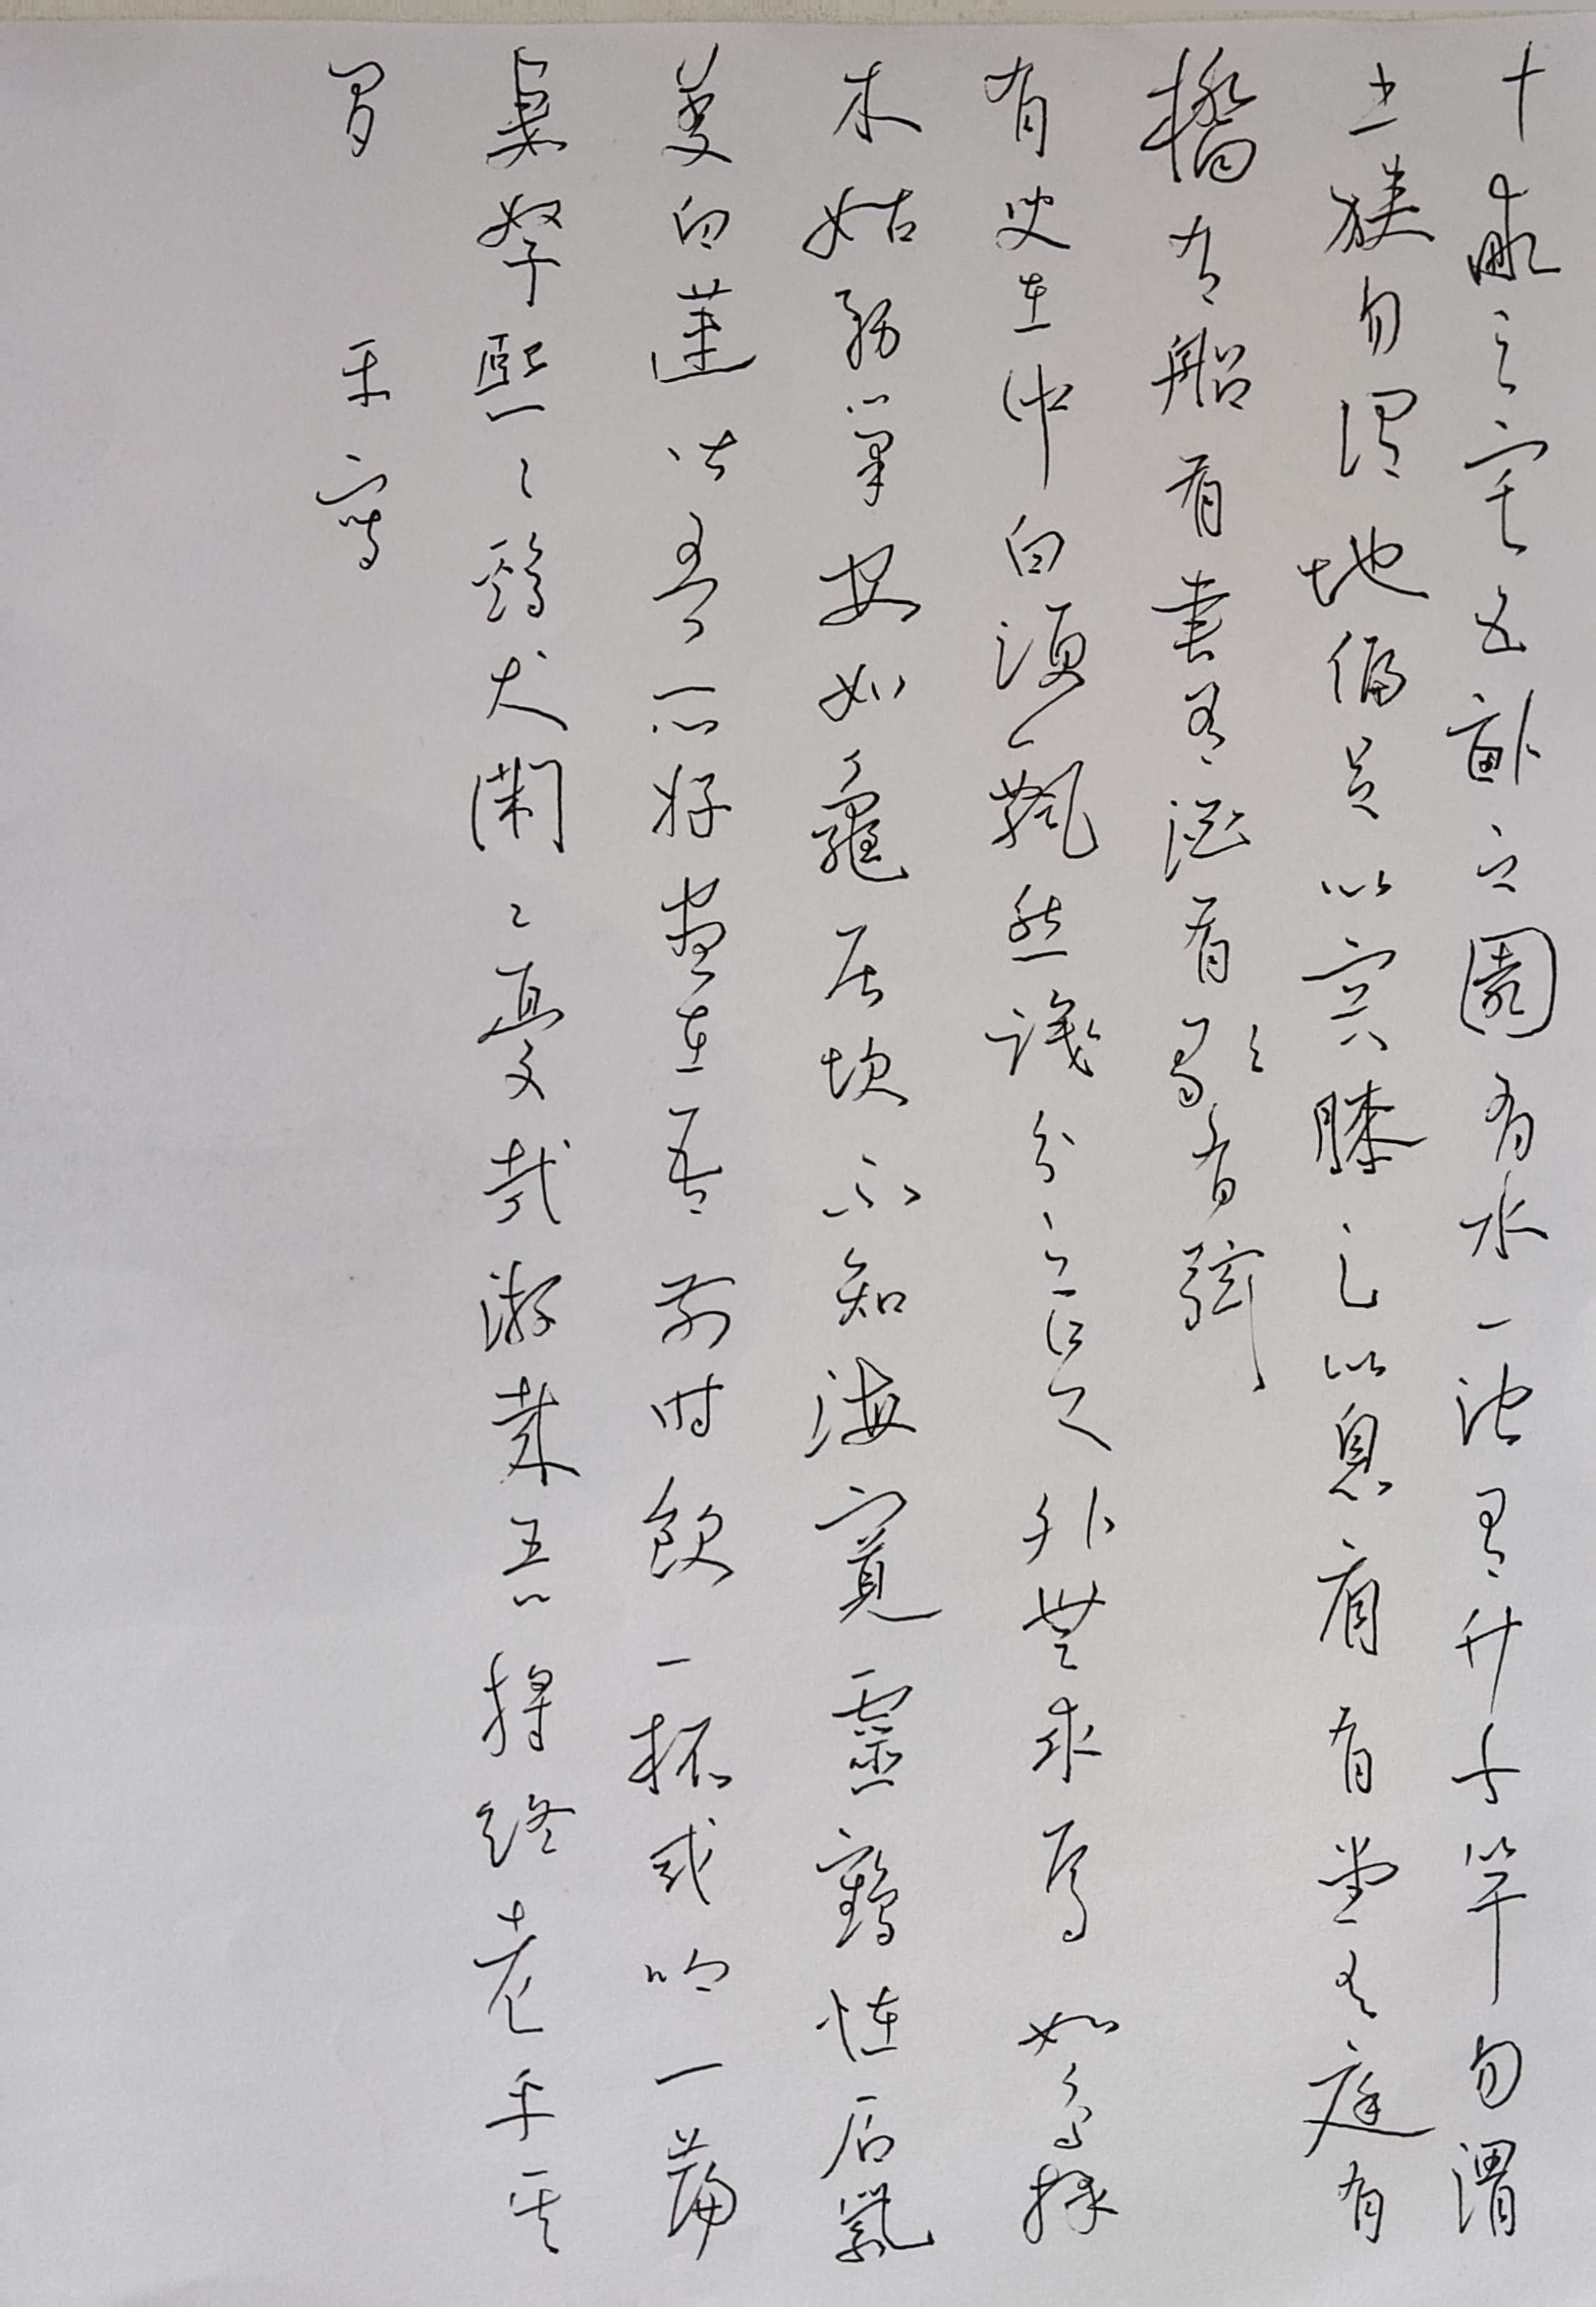 十畝之宅五畝之園有水一池有竹千竿勿謂
土狹勿謂地偏足以容膝足以息肩有堂有庭有
橋有船有書有酒有歌有弦
有叟在中白須飄然識分知足外無求焉如鳥擇
木姑務巢安如龜居坎不知海寬靈鶴怪石紫
菱白蓮皆吾所好盡在吾前時飲一杯或吟一篇
妻孥熙々雞犬閑々優哉游哉吾將終老乎其
間 寫